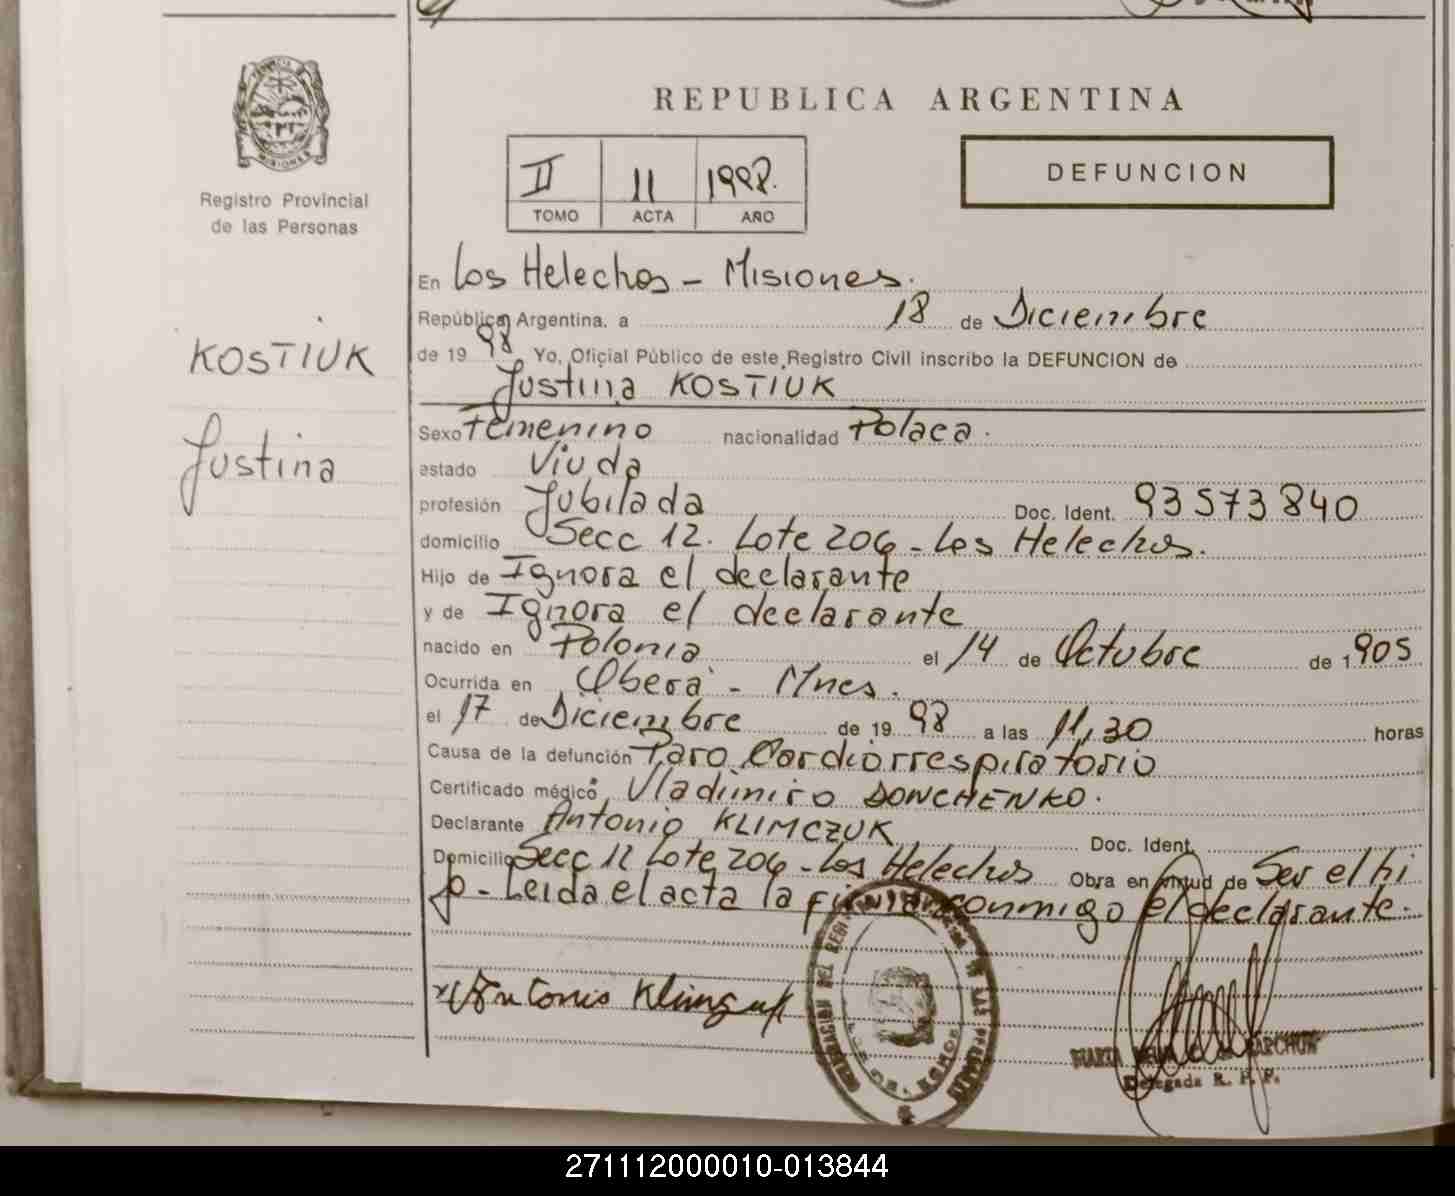 REPUBLICA ARGENTINA
DEFUNCION
II 11 1998.
TOMO ACTA AÑO
MISIONES
Registro Provincial
de las Personas
KOSTIUK
Justina
En Los Helechos - Misiones.
República Argentina, a 18 de Diciembre
de 19 98 Yo, Oficial Público de este Registro Civil inscribo la DEFUNCION de
Justina KOSTIUK
Sexo Femenino nacionalidad Polaca.
estado Viuda
profesión Jubilada Doc. Ident. 93573840
domicilio Secc 12. Lote 206 - Los Helechos.
Hijo de Ignora el declarante
y de Ignora el declarante
nacido en Polonia el 14 de Octubre de 1905
Ocurrida en Oberá - Mnes.
el 17 de Diciembre de 19 98 a las 11,30 horas
Causa de la defunción Paro Cardiorrespiratorio
Certificado médico Vladimiro DONCHENKO.
Declarante Antonio KLIMCZUK Doc. Ident.
Domicilio Secc 12 Lote 206 - Los Helechos Obra en virtud de Ser el hi
jo - Leida el acta la firma conmigo el declarante.
Antonio Klimczuk
MARTA
Delegada R. P. P.
271112000010-013844